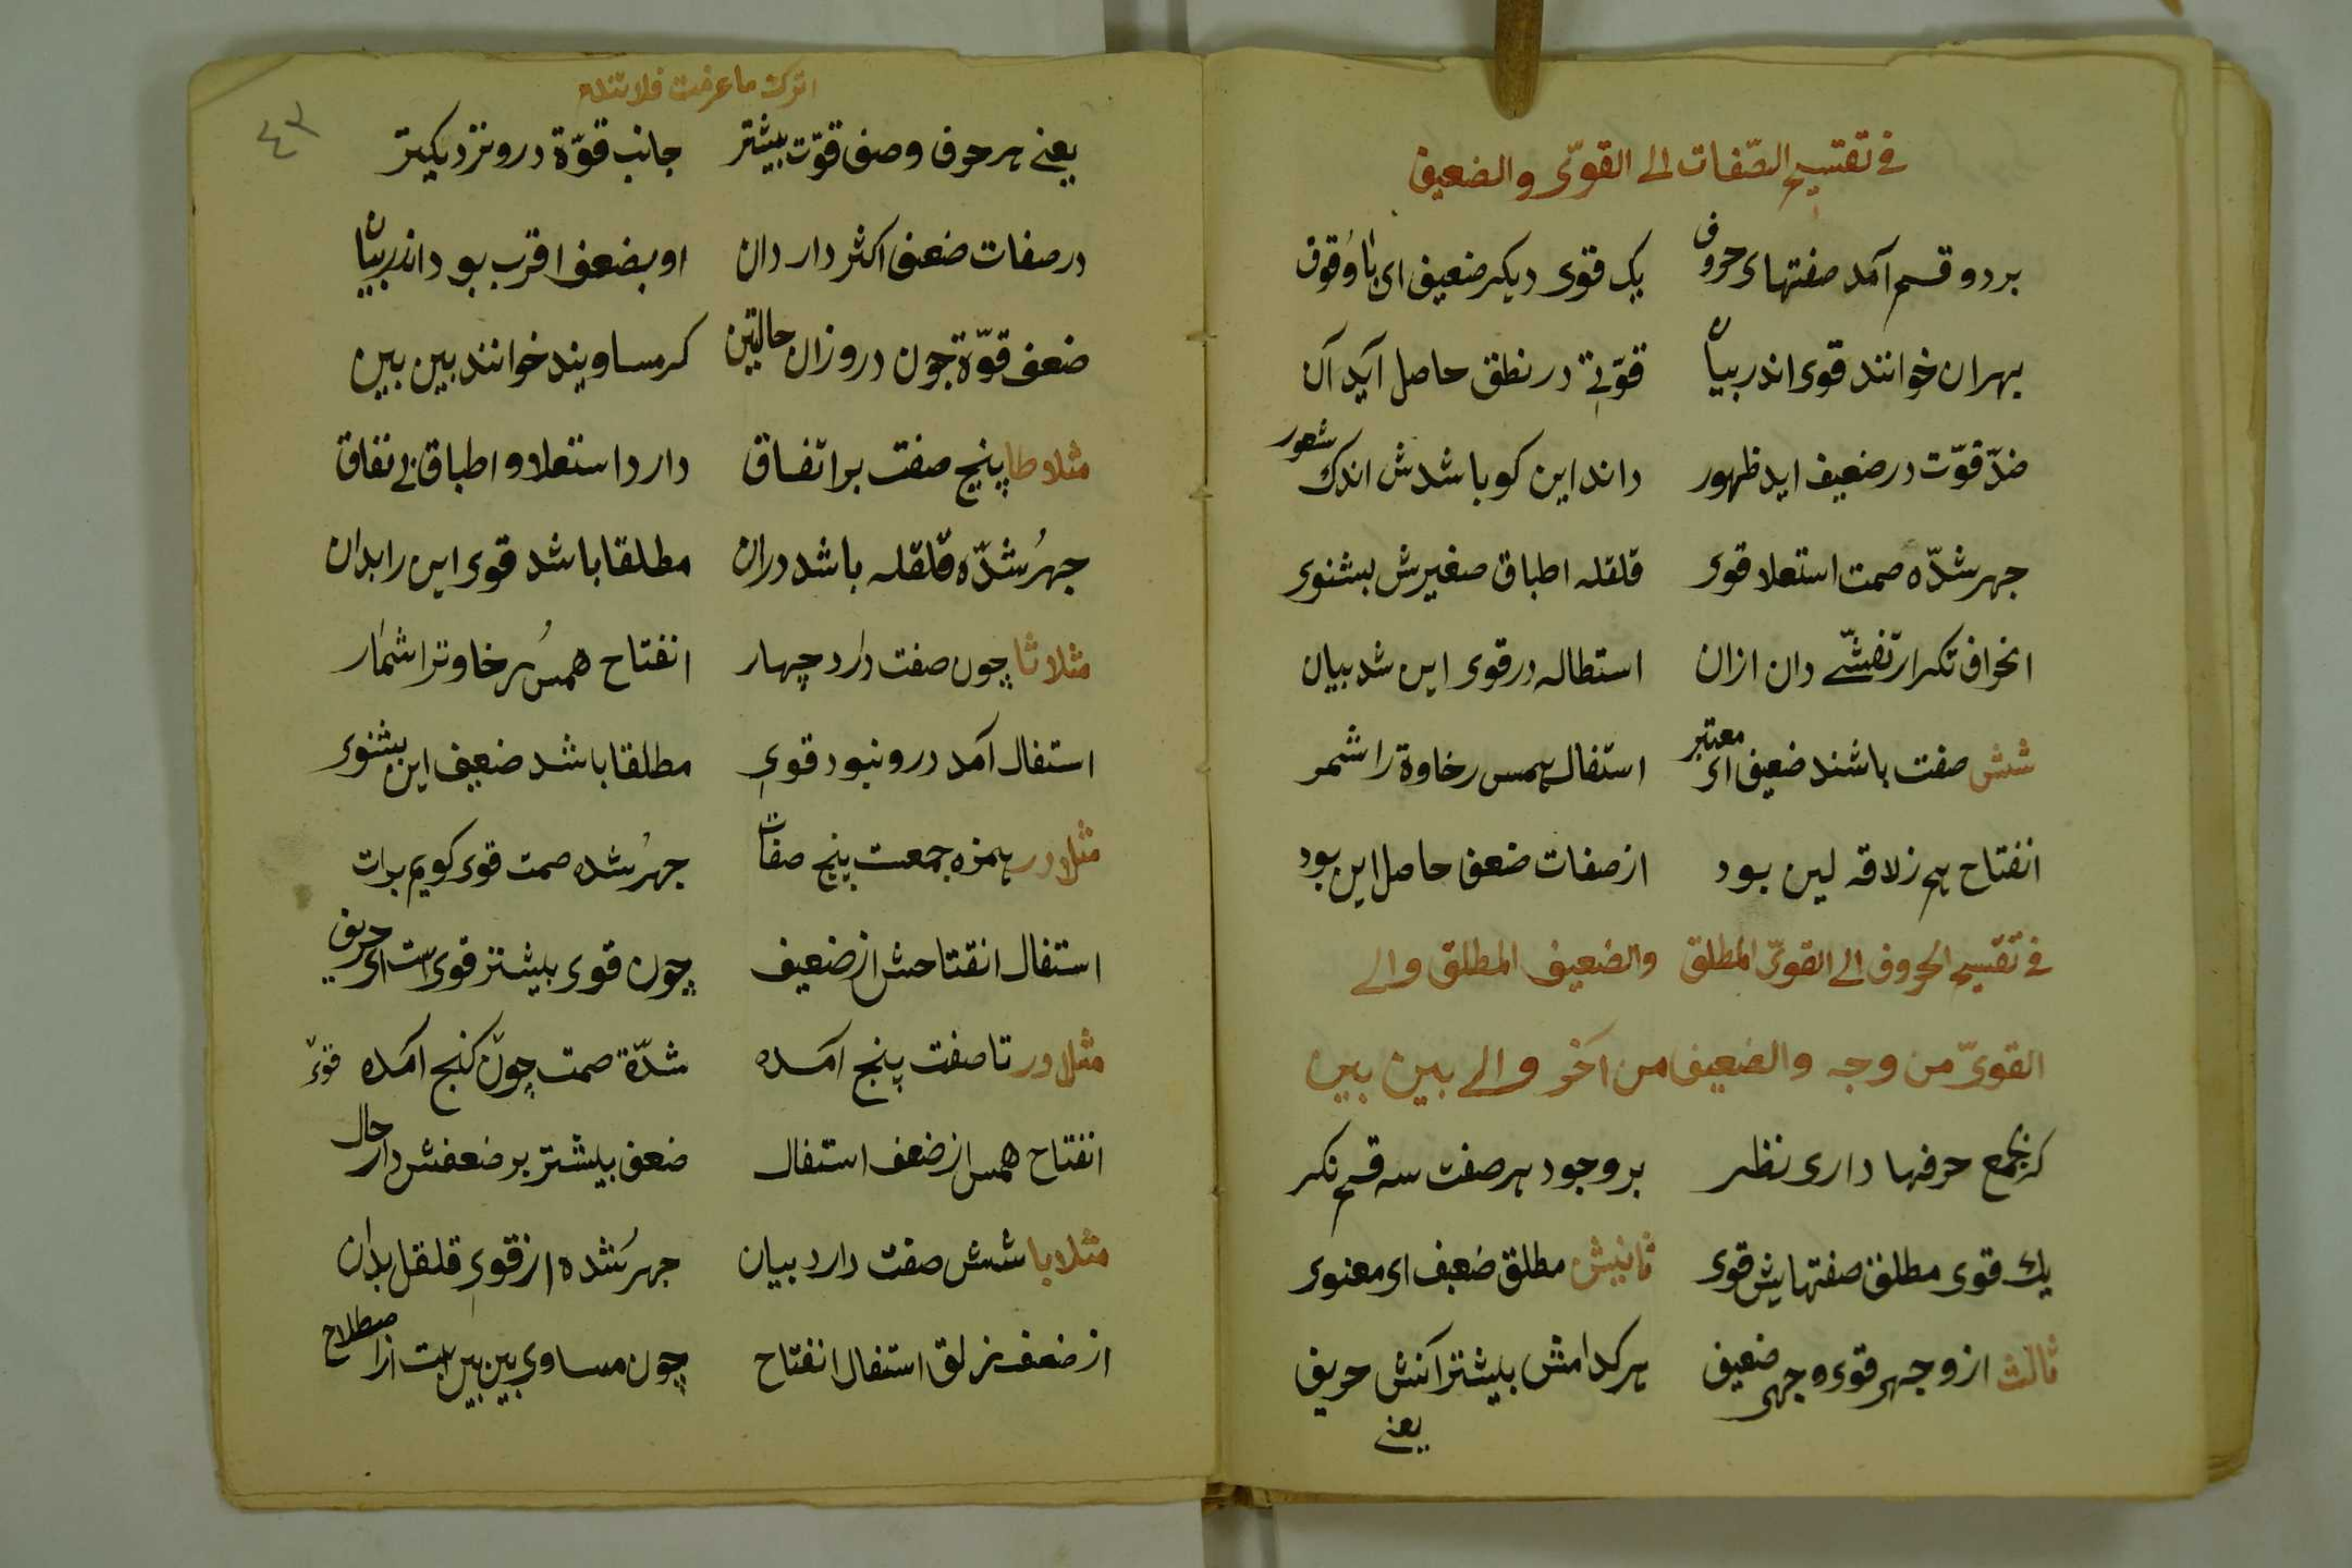 في تقسيم الصّفات الى القوىّ والضعيف
بر دو قسم آمد صفتهاى حروف یک قوى دیکر ضعیف اى با وُقوف
بهر ان خوانند قوى اندر بیان قوّتے در نطق حاصل آید آن
ضدّ قوّت در ضعیف اید ظهور داند این کو باشدش اندک شعور
جهر شدّه صمت استعلا قوى قلقله اطباق صغیرش بشنوى
انحراف تکرار تفشّے دان ازان استطاله در قوى این شد بیان
شش صفت باشند ضعیف اى معتبر استفال همس رخاوة را شمر
انفتاح هم زلاقه لین بود از صفات ضعف حاصل این بود
في تقسيم الحروف الى القوىّ المطلق والضعيف المطلق والى
القوىّ من وجه والضعيف من آخر والى بين بين
کر بجمع حرفها دارى نظر بر وجود هر صفت سه قسم نکر
یك قوى مطلق صفتهایش قوى ثانیش مطلق ضعیف اى معنوى
ثالث از وجهى قوى وجهى ضعیف هر کدامش بیشتر آنش حریف
یعنے
اترك ما عرفت فلا تندم
٤٣
یعنے هر حرف وصف قوّت بیشتر جانب قوّة درو نزدیکتر
در صفات ضعف اکثر دار دان او بضعف اقرب بود اندر بیان
ضعف قوّة چون درو زان حالتین کر مساویند خوانند بین بین
مثلا طا پنج صفت بر اتفاق دارد استعلا و اطباق بے نفاق
جهرُ شدّه قلقله باشد دران مطلقا باشد قوى این را بدان
مثلا ثا چون صفت دارد چهار انفتاح همسُ رخاوترا شمار
استفال آمد درو نبود قوى مطلقا باشد ضعیف این بشنوى
مثلا در همزه جمعت پنج صفات جهرُ شده صمت قوى کویم برات
استفال انفتاحش از ضعیف چون قوى بیشتر قوى است اى حریف
مثلا در تا صفت پنج آمده شدّة صمت چون کنج آمده قوى
انفتاح همس از ضعف استفال ضعف بیشتر بر ضعفش دار حال
مثلا با شش صفت دارد بیان جهرُ شده از قوى قلقل بدان
از ضعف زلق استفال انفتاح چون مساوى بین بین است از اصطلاح